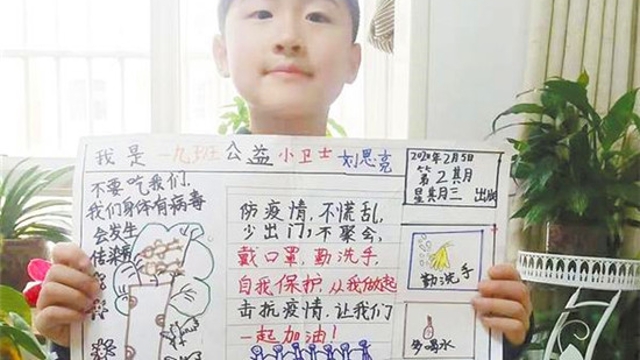 我是一九班公益小卫士刘思亮
不要吃我们,
我们身体有病毒
会发生
传染病
防疫情,不慌乱,
少出门,不聚会,
戴口罩,勤洗手,
自我保护,从我做起
击抗疫情,让我们
一起加油!
2020年2月5日
第2期
星期三 出版
勤洗手
多喝水